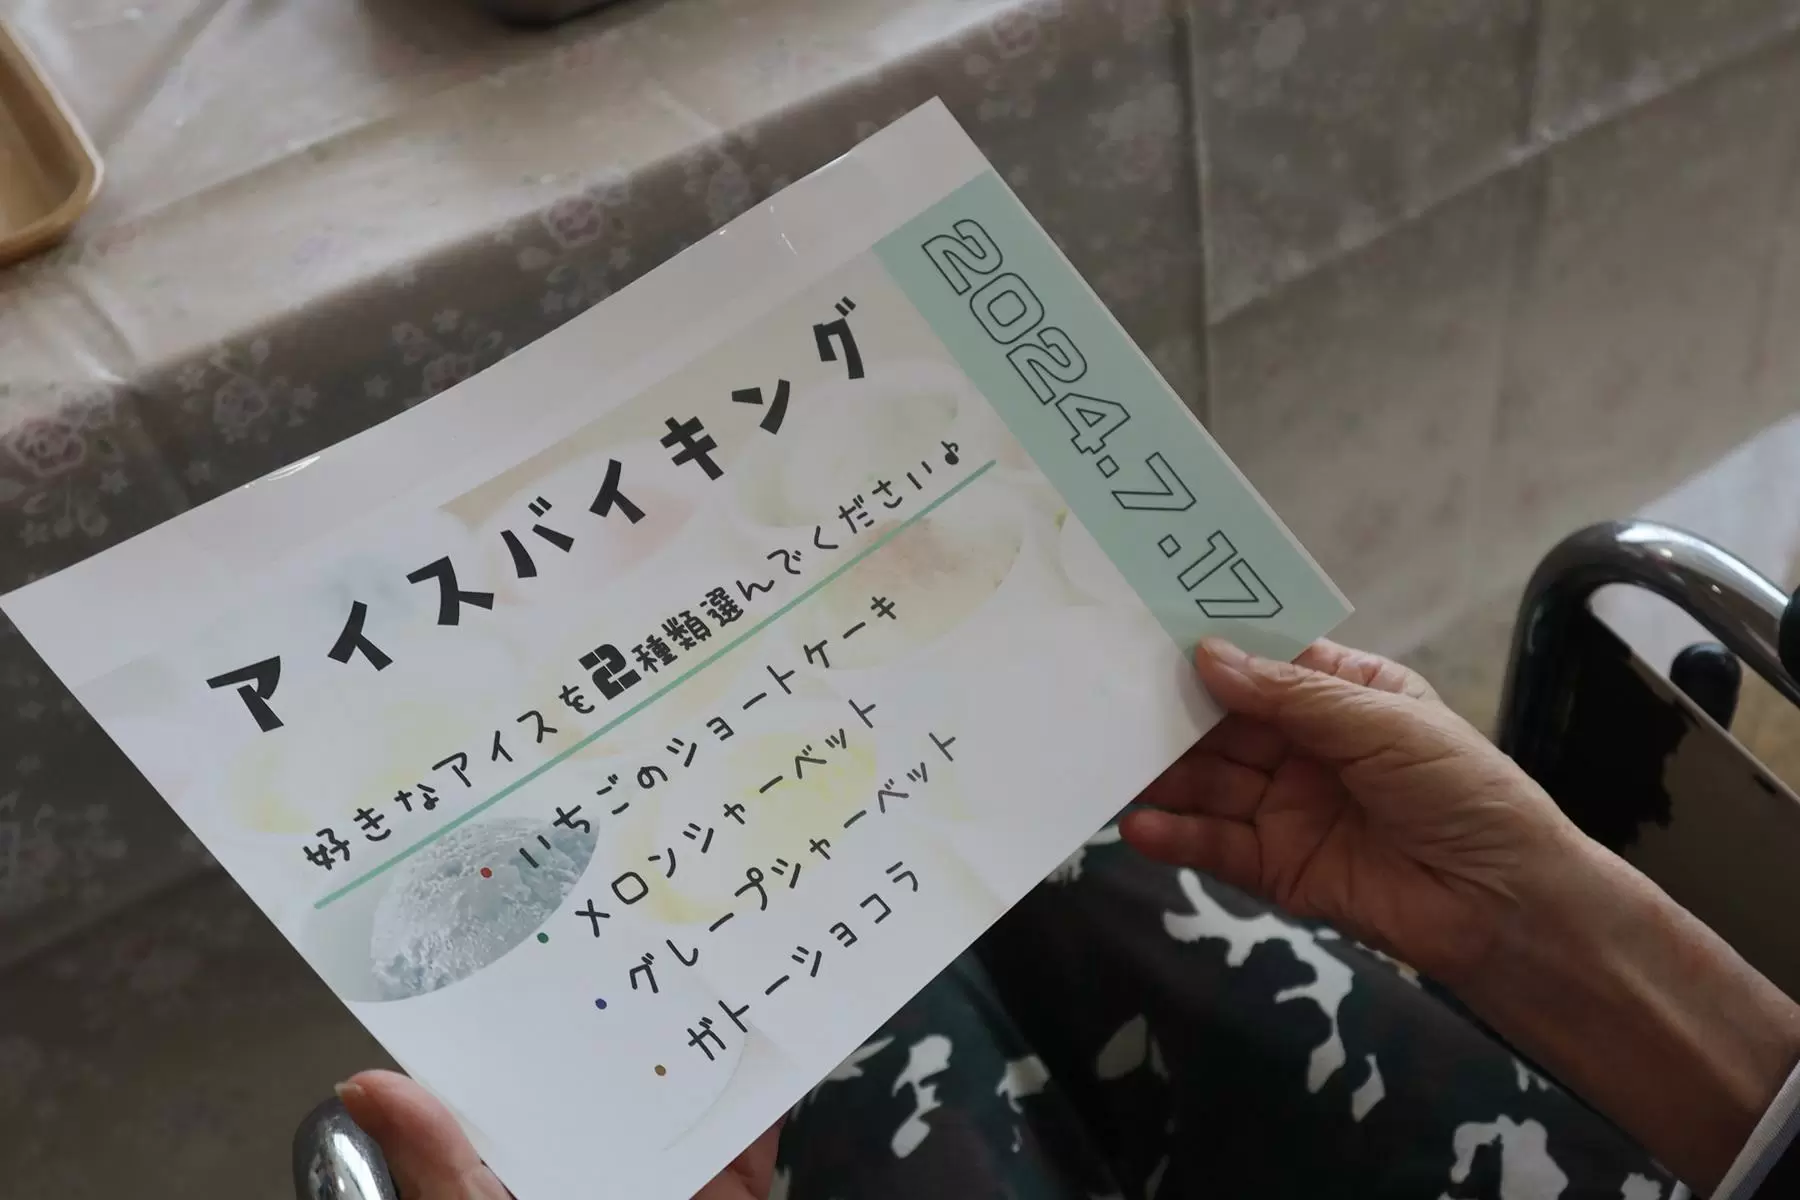 アイスバイキング
好きなアイスを2種類選んでください♪
・いちごのショートケーキ
・メロンシャーベット
・グレープシャーベット
・ガトーショコラ
2024.7.17